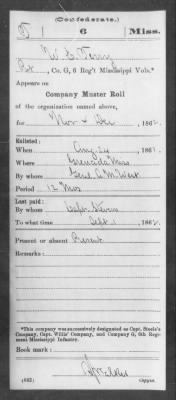 (Confederate.)
6 Miss.
W. E. Terry
Pvt, Co. G, 6 Reg't Mississippi Vols.*
Appears on
Company Muster Roll
of the organization named above,
for Nov & Dec, 1862.
Enlisted:
When Aug 24, 1861.
Where Grenada Miss
By whom Genl. A. M. West
Period 12 Mos
Last paid:
By whom Capt. Stevens
To what time Sept 1, 1862.
Present or absent Present
Remarks:
*This company was successively designated as Capt. Steele's Company, Capt. Willis' Company, and Company G, 6th Regiment Mississippi Infantry.
Book mark:
(642)
Copyist.